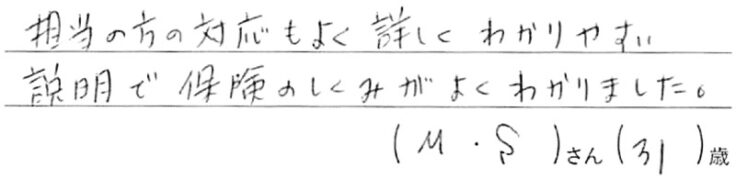 担当の方の対応もよく詳しくわかりやすい
説明で保険のしくみがよくわかりました。
(M・S)さん(31)歳